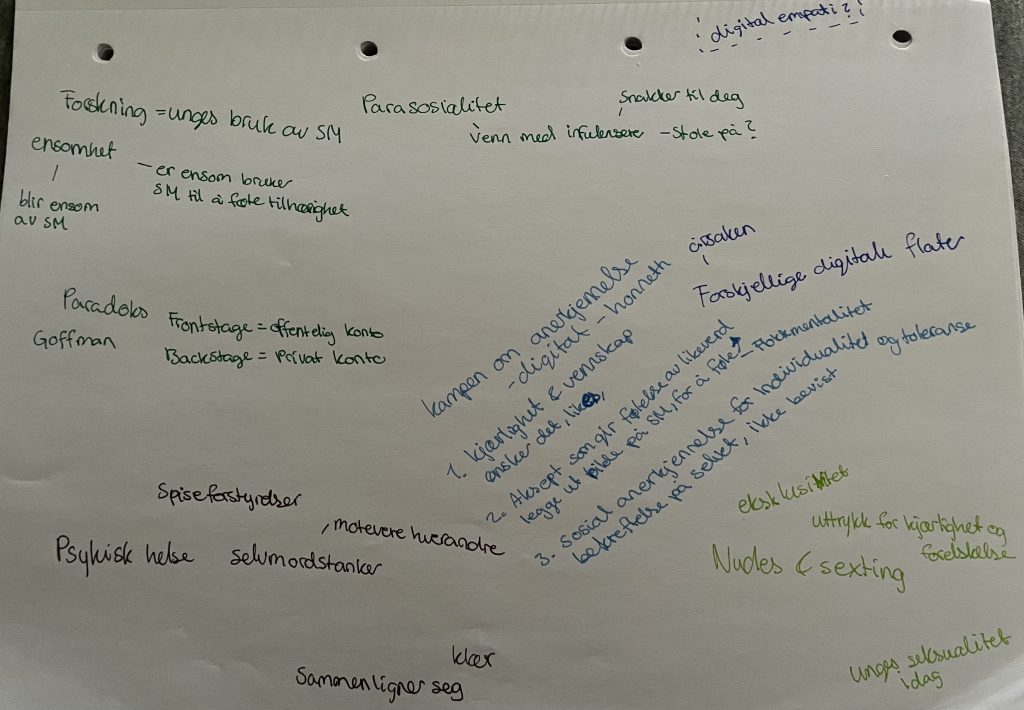 digital empati?
Forskning = unges bruk av SM
ensomhet
- er ensom bruker
SM til å føle tilhørighet
blir ensom
av SM
Parasosialitet
Snakker til deg
Venn med infulensere - Stole på?
Paradoks
Goffman
Frontstage = offentelig konto
Backstage = Privat konto
årsaken
Forskjellige digitale flater
kampen om anerkjennelse
- digital - honneth
1. kjærlighet & vennskap
ønsker det, likes,
2. Aksept som gir følelse av likeverd
legge ut bilde på SM, for å føle? - Flokkmentalitet
3. sosial anerkjennelse for individualitet og toleranse
bekreftelse på selvet, ikke bevist
Spiseforstyrrelser
, motevere hverandre
Psykisk helse selvmordstanker
klær
Sammenligner seg
eksklusivitet
uttrykk for kjærlighet og
forelskelse
Nudes & sexting
unges seksualitet
idag